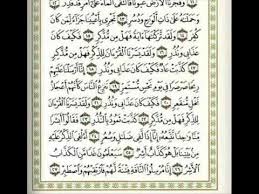 وَفَجَّرْنَا ٱلْأَرْضَ عُيُونًا فَٱلْتَقَى ٱلْمَآءُ عَلَىٰٓ أَمْرٍ قَدْ قُدِرَ ١٢
وَحَمَلْنَٰهُ عَلَىٰ ذَاتِ أَلْوَٰحٍ وَدُسُرٍ ١٣ تَجْرِى بِأَعْيُنِنَا جَزَآءً لِّمَن كَانَ
كُفِرَ ١٤ وَلَقَد تَّرَكْنَٰهَآ ءَايَةً فَهَلْ مِن مُّدَّكِرٍ ١٥ فَكَيْفَ كَانَ
عَذَابِى وَنُذُرِ ١٦ وَلَقَدْ يَسَّرْنَا ٱلْقُرْءَانَ لِلذِّكْرِ فَهَلْ مِن مُّدَّكِرٍ ١٧
كَذَّبَتْ عَادٌ فَكَيْفَ كَانَ عَذَابِى وَنُذُرِ ١٨ إِنَّآ أَرْسَلْنَا عَلَيْهِمْ
رِيحًا صَرْصَرًا فِى يَوْمِ نَحْسٍ مُّسْتَمِرٍّ ١٩ تَنزِعُ ٱلنَّاسَ كَأَنَّهُمْ أَعْجَازُ
نَخْلٍ مُّنقَعِرٍ ٢٠ فَكَيْفَ كَانَ عَذَابِى وَنُذُرِ ٢١ وَلَقَدْ يَسَّرْنَا ٱلْقُرْءَانَ
لِلذِّكْرِ فَهَلْ مِن مُّدَّكِرٍ ٢٢ كَذَّبَتْ ثَمُودُ بِٱلنُّذُرِ ٢٣ فَقَالُوٓا۟ أَبَشَرًا
مِّنَّا وَٰحِدًا نَّتَّبِعُهُۥٓ إِنَّآ إِذًا لَّفِى ضَلَٰلٍ وَسُعُرٍ ٢٤ أَءُلْقِىَ ٱلذِّكْرُ عَلَيْهِ
مِنۢ بَيْنِنَا بَلْ هُوَ كَذَّابٌ أَشِرٌ ٢٥ سَيَعْلَمُونَ غَدًا مَّنِ ٱلْكَذَّابُ
ٱلْأَشِرُ ٢٦ إِنَّا مُرْسِلُوا۟ ٱلنَّاقَةِ فِتْنَةً لَّهُمْ فَٱرْتَقِبْهُمْ وَٱصْطَبِرْ ٢٧